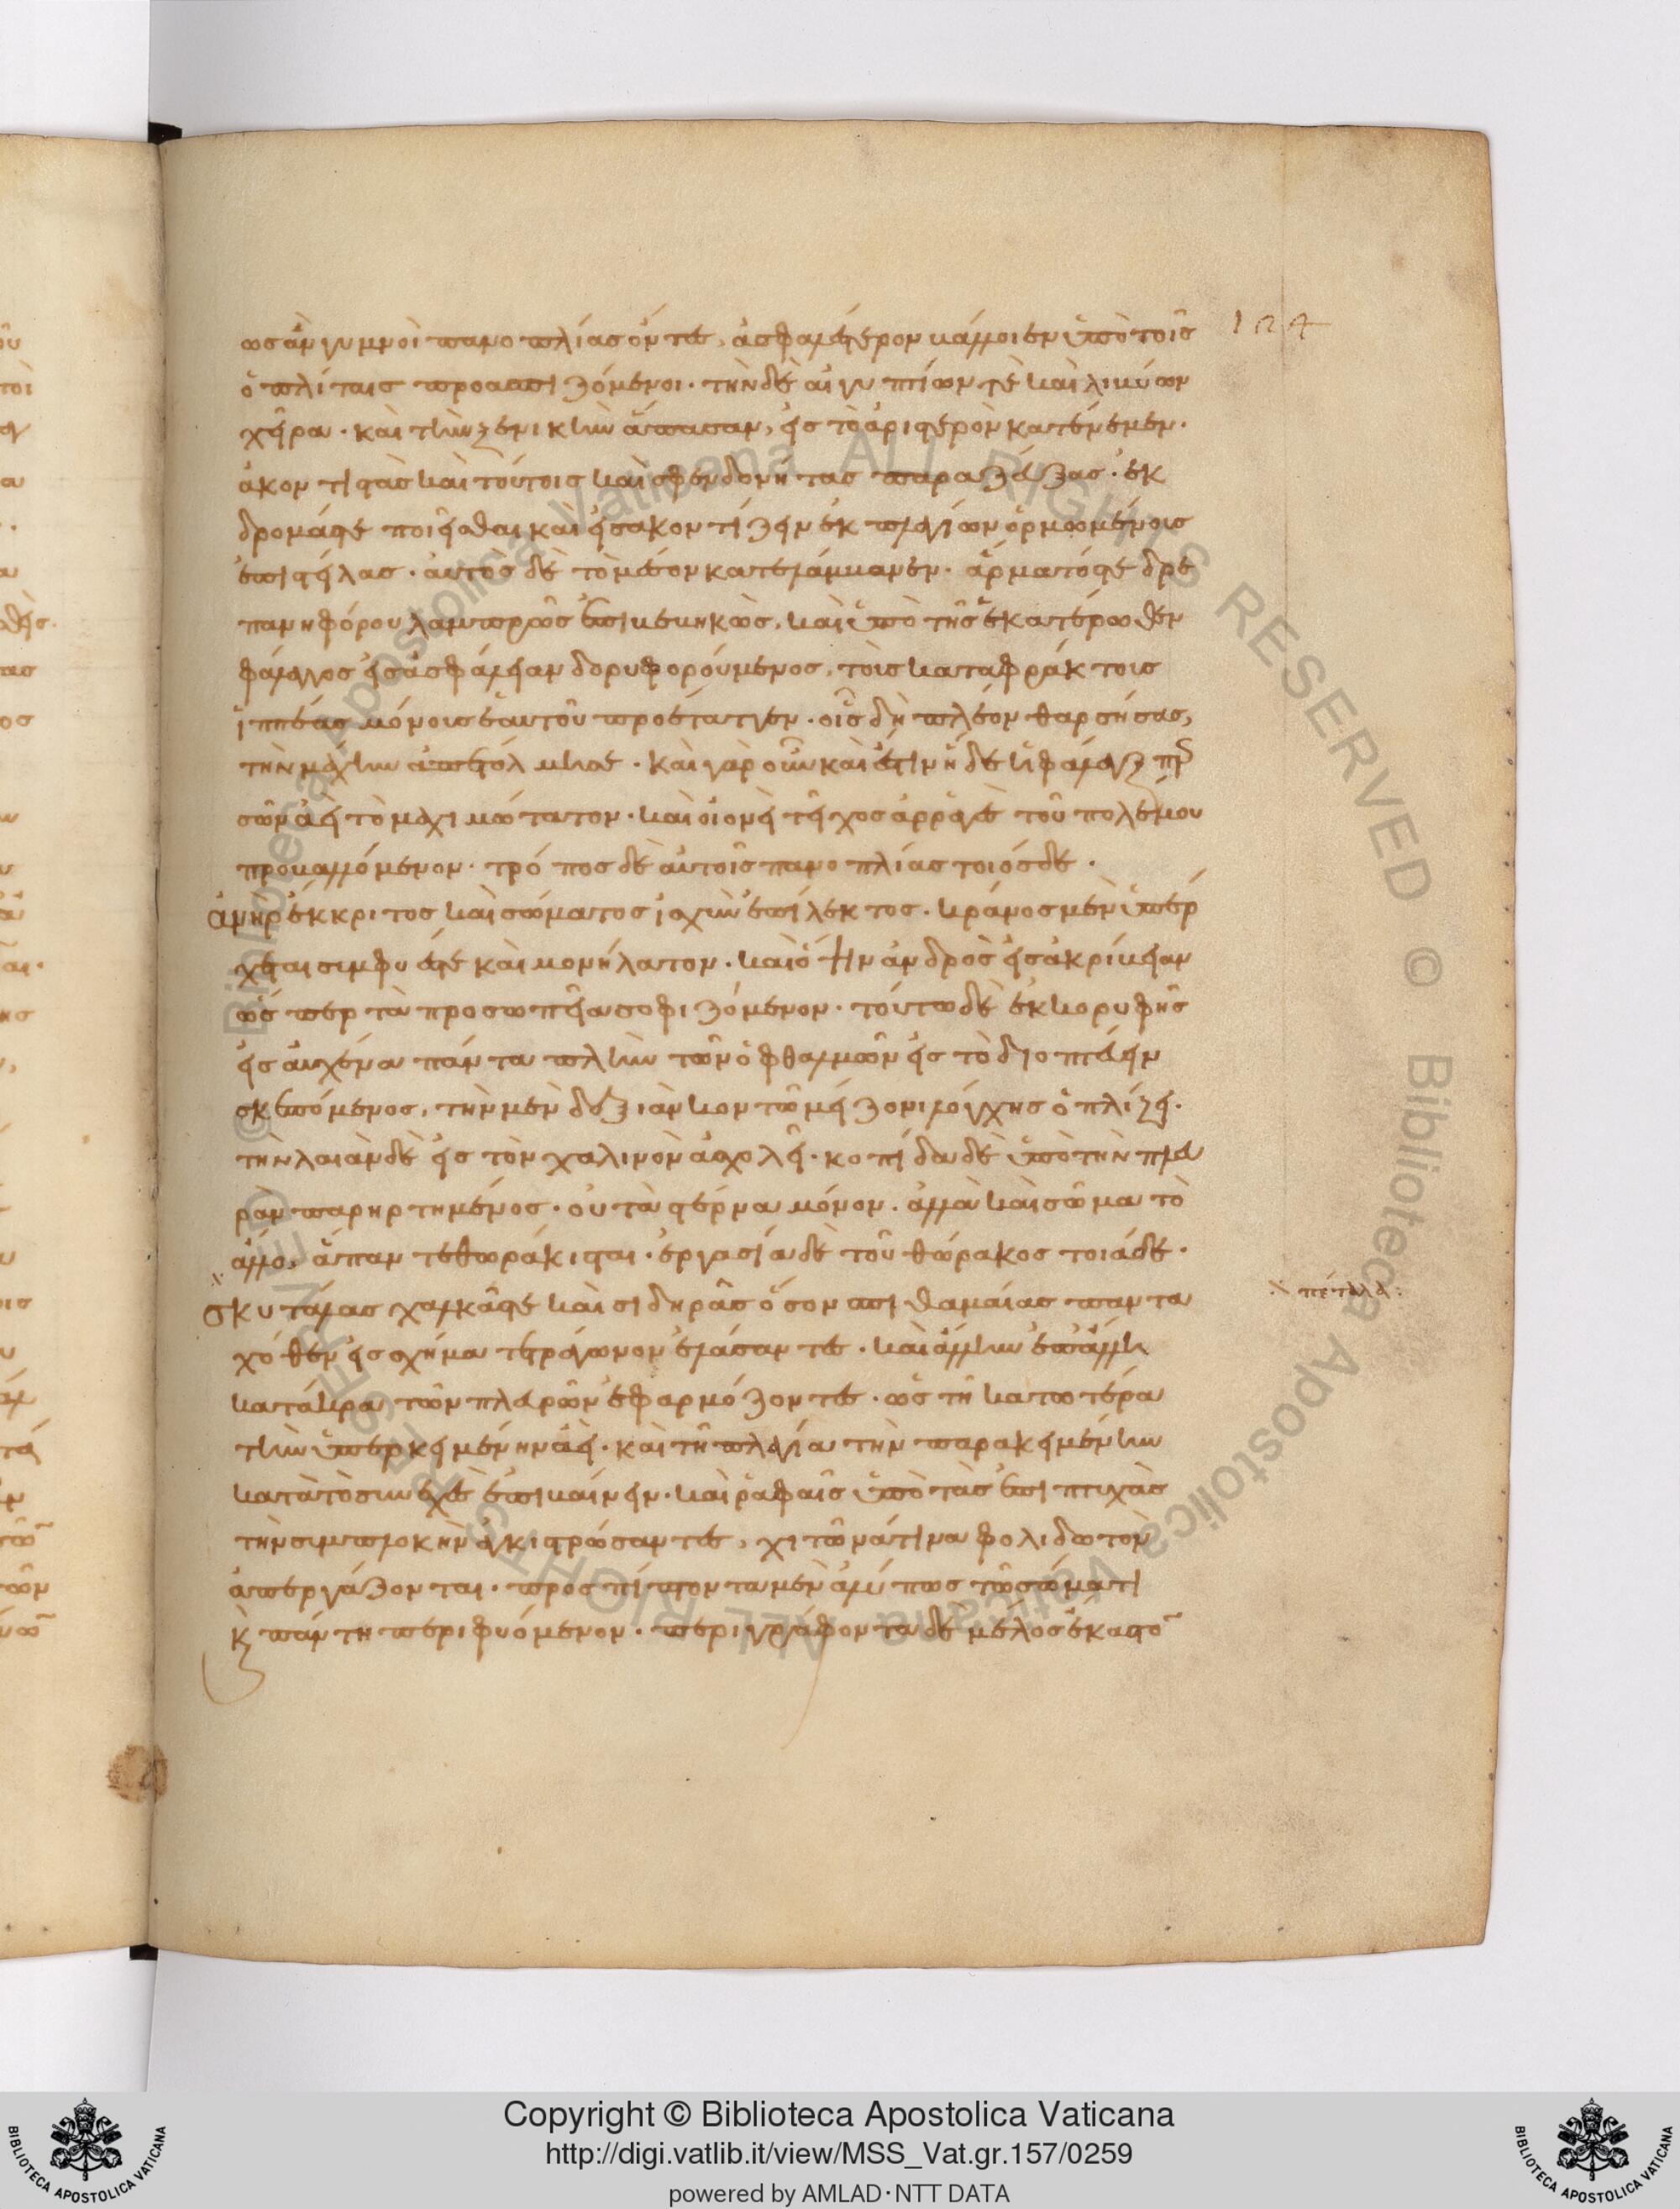 ὡς ἂν γυμνοὶ πανοπλίας ὄντες, ἀσφαλέστερον βάλλοιεν ὑπὸ τοῖς
124
ὁπλίταις προασπιζόμενοι. τὴν δὲ αἰγυπτίων τὲ καὶ λιβύων
χεῖρα. καὶ τὴν ξενικὴν ἅπασαν, εἰς τὸ ἀριστερὸν κατένεμεν.
ἀκοντιστὰς καὶ τούτοις καὶ σφενδονήτας παραζεύξας. ἐκ
δρομάς τε ποιεῖσθαι καὶ εἰσακοντίζειν ἐκ πλαγίων ὁρμωμένοις
ἐπιστείλας. αὐτὸς δὲ τὸ μέσον κατελάμβανεν. ἅρματός τε δρε
πανηφόρου λαμπρῶς ἐπιβεβηκὼς, καὶ ὑπὸ τῆς ἑκατέρωθεν
φάλαγγος εἰς ἀσφάλειαν δορυφορούμενος, τοὺς καταφράκτους
ἱππέας μόνους ἑαυτοῦ προέταττεν. οἷς δὴ πλέον θαρσήσας,
τὴν μάχην ἀπετόλμησε. καὶ γὰρ οὖν καὶ ἔστιν ἥδε ἡ φάλαγξ περ
σῶν ἀεὶ τὸ μαχιμώτατον. καὶ οἱονεὶ τεῖχος ἀρραγὲς τοῦ πολέμου
προβαλλόμενον. τρόπος δὲ αὐτοῖς πανοπλίας τοιόσδε.
ἀνὴρ ἔκκριτος καὶ σώματος ἰσχὺν ἐπίλεκτος. κράνος μὲν ὑπέρ
χεται συμφυές τε καὶ μονήλατον. καὶ ὄψιν ἀνδρὸς εἰς ἀκρίβειαν
ὥσπερ τὰ προσωπεῖα σοφιζόμενον. τούτω δὲ ἐκ κορυφῆς
εἰς αὐχένα πάντα πλὴν τῶν ὀφθαλμῶν εἰς τὸ διοπτεύειν
σκεπόμενος, τὴν μὲν δεξιὰν κοντῶ μείζονι λόγχης ὁπλίζει.
τὴν λαιὰν δὲ εἰς τὸν χαλινὸν ἀσχολεῖ. κοπίδα δὲ ὑπὸ τὴν πλευ
ρὰν παρηρτημένος. οὐ τὰ στέρνα μόνον. ἀλλὰ καὶ σῶμα τὸ
ἄλλο, ἅπαν τεθωράκισται. ἐργασία δὲ τοῦ θώρακος τοιάδε.
σκυτάλας χαλκᾶς τε καὶ σιδηρᾶς ὅσον σπιθαμαίας παντα
πέταλα:
χόθεν εἰς σχῆμα τετράγωνον ἐλάσαντες. καὶ ἄλλην ἐπ' ἄλλη
κατάκρα τῶν πλευρῶν ἐφαρμόζοντες. ὡς τῆ κατωτέρα
τὴν ὑπερκειμένην ἀεὶ. καὶ τῆ πλαγία τὴν παρακειμένην
κατὰ τὸ συνεχὲς ἐπιβαίνειν. καὶ ῥαφαῖς ὑπὸ τὰς ἐπιπτυχὰς
τὴν συμπλοκὴν ἀγκιστρώσαντες, χιτῶνά τινα φολιδωτὸν
ἀπεργάζονται. προσπίπτοντα μὲν ἀλύπως τῶ σώματι
κ πάντη περιφυόμενον. περιγράφοντα δὲ μέλος ἕκαστο